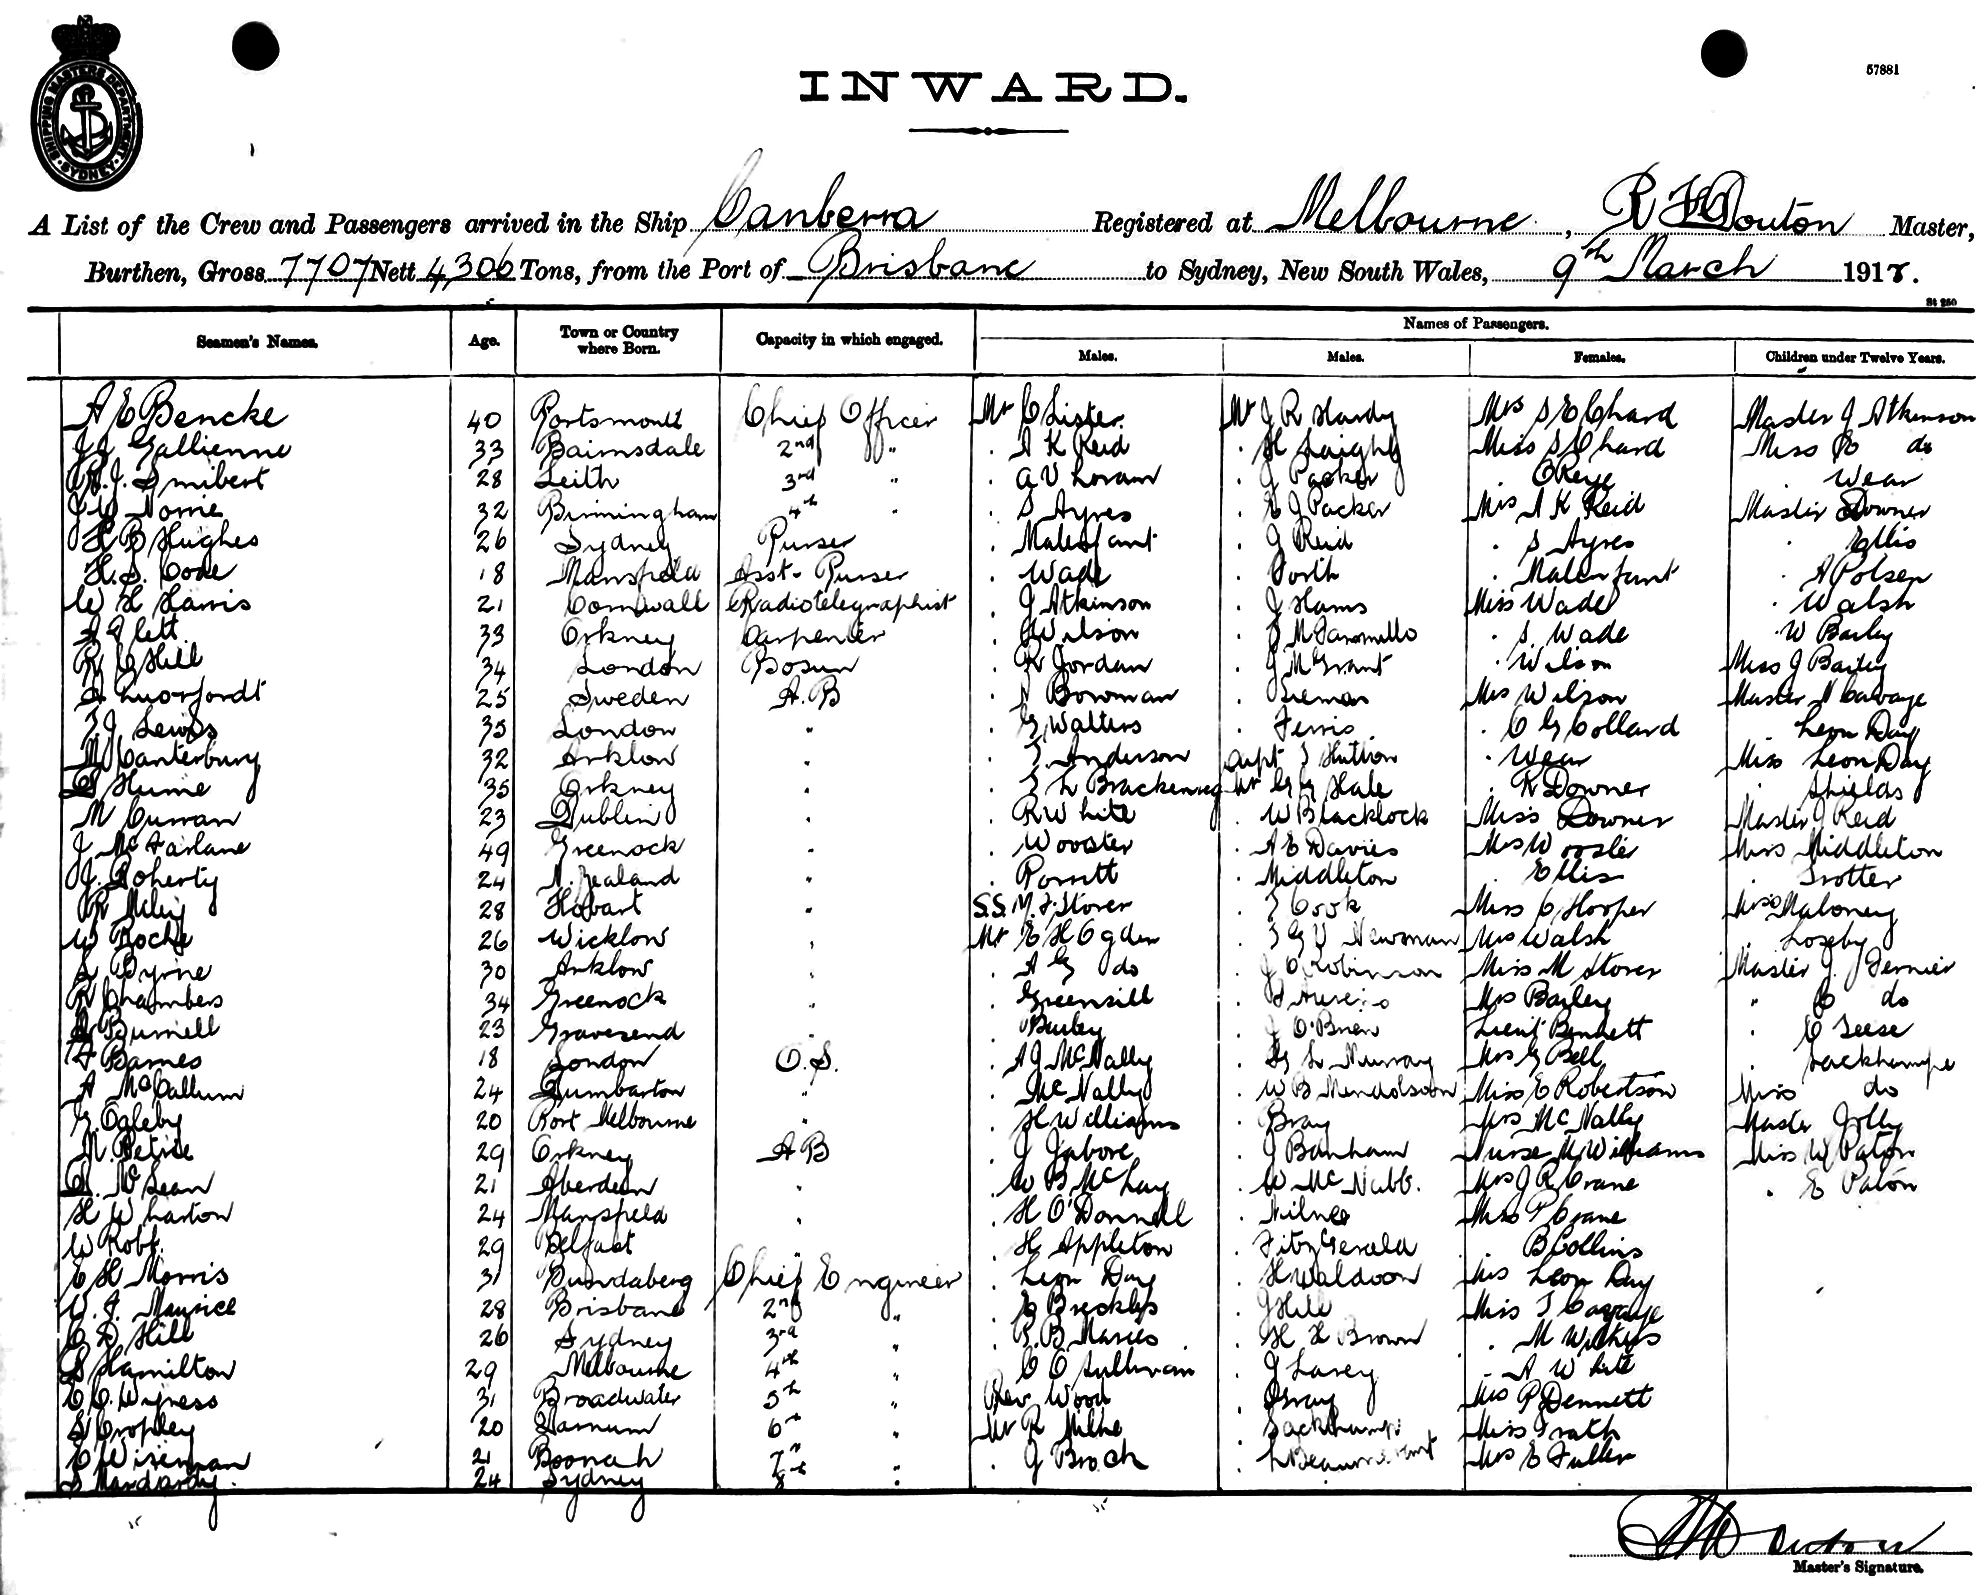 SHIPPING MASTERS DEPARTMENT
SYDNEY
57881
INWARD.
A List of the Crew and Passengers arrived in the Ship Canberra Registered at Melbourne, R Douton Master,
Burthen, Gross 7707 Nett 4306 Tons, from the Port of Brisbane to Sydney, New South Wales, 9th March 1918.
St 250
Names of Passengers.
Seamen's Names. Age. Town or Country where Born. Capacity in which engaged. Males. Males. Females. Children under Twelve Years.
A E Bencke 40 Portsmouth Chief Officer Mr C Lister Mr J R Hardy Mrs S E Chard Master J Atkinson
J J Gallienne 33 Bairnsdale 2nd " . A K Reid . H Laighly Miss S Chard Miss E do
R. J. Smibert 28 Leith 3rd " . A V Loram . J Packer . C Keye . Wear
J W Norrie 32 Birmingham 4th " . S Ayres . E J Packer Mrs A K Reid Master Downer
H B Hughes 26 Sydney Purser . Malenfant . J Reid . S Ayres . Ellis
H. S. Code 18 Mansfield Asst. Purser . Wade . Forth . Malenfant . A Polsen
W L Harris 21 Cornwall Radiotelegraphist . J Atkinson . J Hams Miss Wade . Walsh
A Flett 33 Orkney Carpenter . Wilson . S. Wade . W Barley
R G Hill 34 London Bosun . R Jordan . J McGrant . Wilson Miss J Bailey
25 Sweden A.B . Bowman Mrs Wilson Master N Calvage
T J Lewis 35 London " . G Walters . Ferris . C G Collard . Leon Day
M Canterbury 32 Arklow . T Anderson Capt S Hutton . Wear Miss Leon Day
S Hume 35 Orkney . T L Brackenreg Mr G G Hale . R Downer . Shields
M Curran 23 Dublin . R White . W Blacklock Miss Downer Master J Reid
J McFarlane 49 Greenock . Wooster . A E Davies Mrs Wooster Miss Middleton
J. Doherty 24 N. Zealand . Porritt . Middleton . Ellis . Trotter
R Miley 28 Hobart S.S. M. F. Stover . T Cook Miss C Hooper Miss Maloney
W Roche 26 Wicklow Mr E H Ogden . T G V Newman Mrs Walsh . Loseby
L Byrne 30 Arklow . A G do . J C Robinson Miss M Stover Master J. Fernier
R Chambers 34 Greenock . Greensill Mrs Barley " C do
Burnell 23 Gravesend . Barley . J O'Brien Lieut Bennett . C Leese
A Barnes 18 London O.S. . A J McNally . G L Murray Mrs G Bell
A McCallum 24 Dumbarton " . McNally . W B Mendolson Miss E Robertson Miss do
G. Ogleby 20 Port Melbourne . H Williams . Bray Mrs McNally Master Jolly
M. Petrie 29 Orkney AB . J Jabore . J Banham Nurse M Williams Miss W Paton
D. McLean 21 Aberdeen . W B McLay . W McNabb. Mrs J R Crane . E Paton
H Wharton 24 Mansfield . H O'Donnell . Milnes Miss P Crane
W Robb. 29 Belfast . H Appleton . FitzGerald . B Collins
C H Morris 31 Bundaberg Chief Engineer . Leon Day . H Waldoon Mrs Leon Day
W. J. Maurice 28 Brisbane 2nd " . J Hill Miss T Cavage
C D Hill 26 Sydney 3rd " . R. B Maries . H H Brown . M Wilkins
S Hamilton 29 Melbourne 4th " . C O'Sullivan . J Lavey . A White
C C. Wyness 31 Broadwater 5th " Rev Wood . Gray Mrs P Dennett
S Cropley 20 Barnum 6th " Mr R Milne . Miss Trath
C Wiseman 21 Boonah 7th " . J Broch . L Beaumont Mrs E Fuller
24 Sydney 8 "
R Douton
Master's Signature.